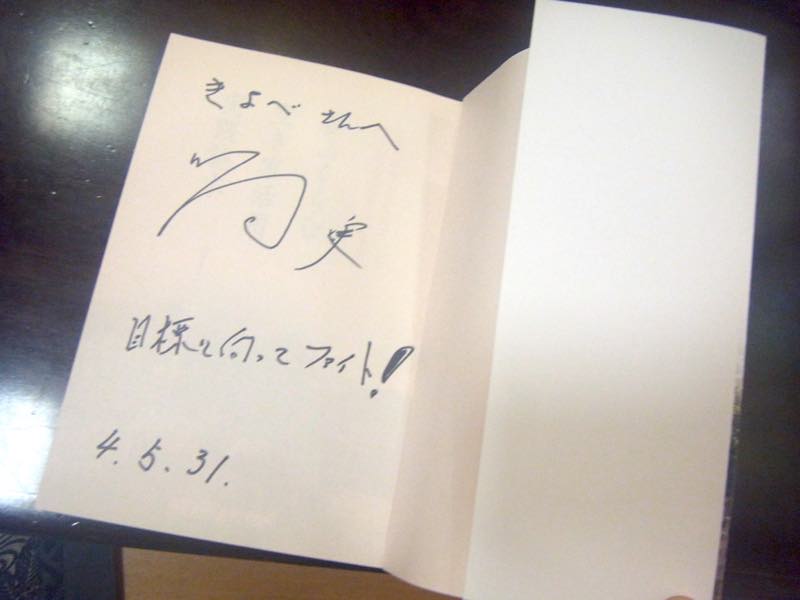 きよべ さんへ
実
目標に向って ファイト!
4.5.31.